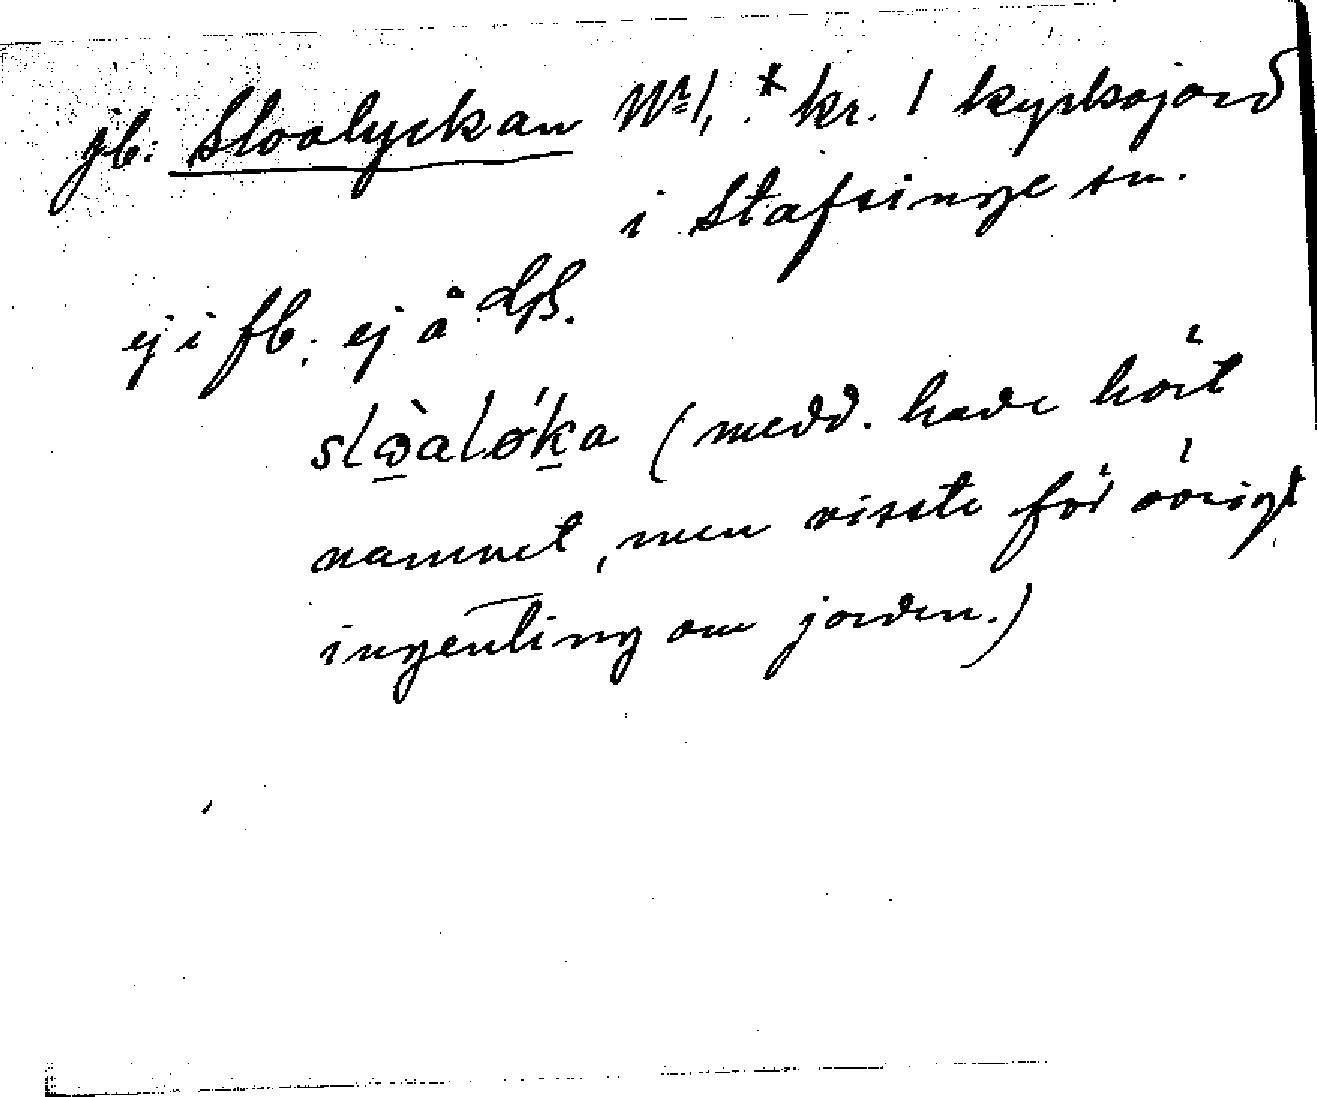 jb: Sloalyckan Nr 1, * kr. 1 kyrkojord
i Stafsinge sn.
ej i fb. ej å
slòaløka (medd. hade hört
namnet, men visste för övrigt
ingenting om jorden.)